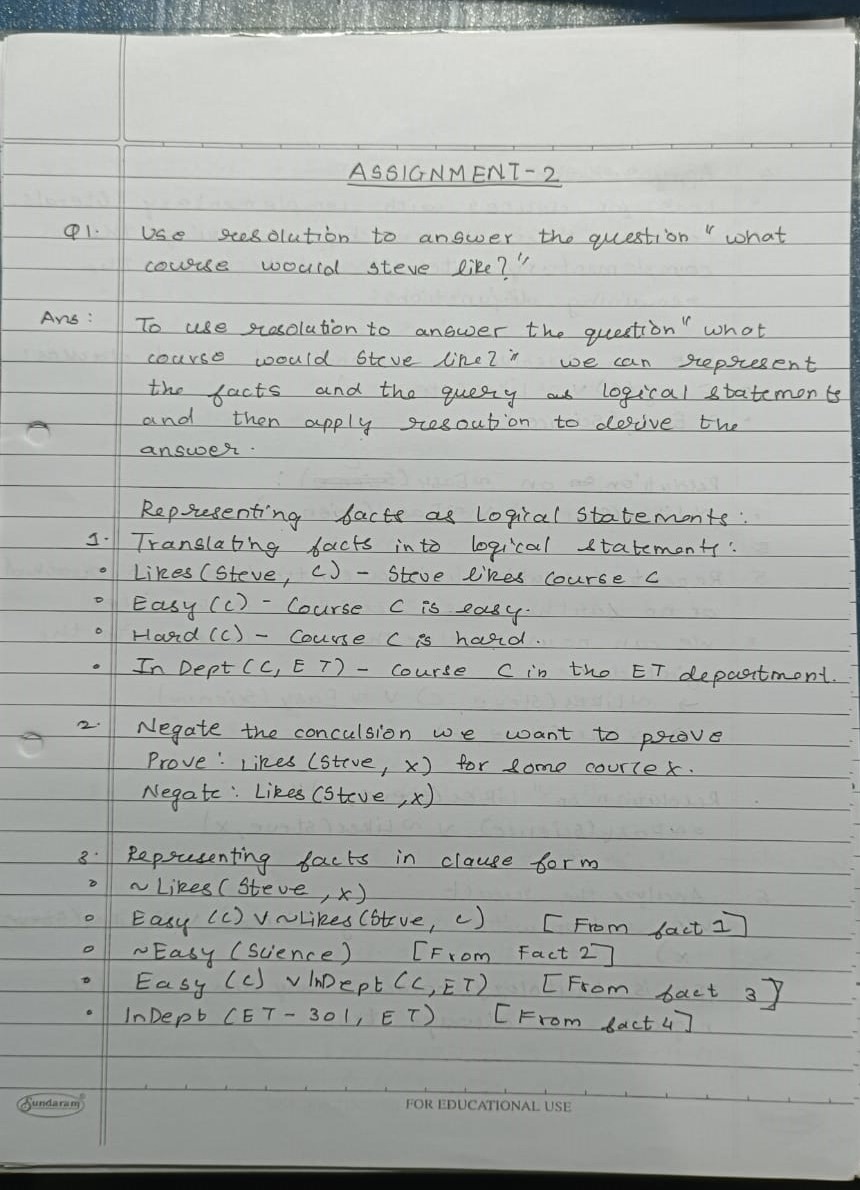 ASSIGNMENT-2
Q1. Use resolution to answer the question "what
course would steve like?"
Ans: To use resolation to answer the question "what
course would Steve like?" we can represent
the facts and the query as logical statements
and then apply resoution to derive the
answer.
Representing facts as Logical Statements:
1. Translating facts into logical statements:
• Likes (Steve, C) - Steve likes course C
• Easy (C) - Course C is easy.
• Hard (C) - Course C is hard.
• In Dept (C, ET) - Course C in the ET department.
2. Negate the conculsion we want to prove
Prove: Likes (Steve, x) for some course x.
Negate: Likes (Steve, x)
3. Representing facts in clause form
• ~Likes (Steve, x)
• Easy (C) V ~Likes (Steve, C) [From fact 1]
• ~Easy (Science) [From Fact 2]
• Easy (C) V InDept (C, ET) [From fact 3]
• InDept (ET-301, ET) [From fact 4]
Sundaram®
FOR EDUCATIONAL USE